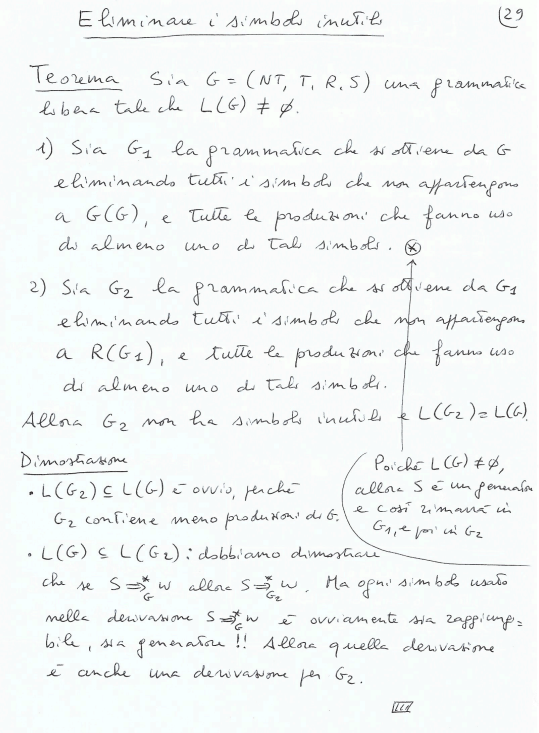 Eliminare i simboli inutili
(29
Teorema Sia G = (NT, T, R, S) una grammatica
libera tale che L(G) ≠ ∅.
1) Sia G₁ la grammatica che si ottiene da G
eliminando tutti i simboli che non appartengono
a G(G), e tutte le produzioni che fanno uso
di almeno uno di tali simboli. ⊛
2) Sia G₂ la grammatica che si ottiene da G₁
eliminando tutti i simboli che non appartengono
a R(G₁), e tutte le produzioni che fanno uso
di almeno uno di tali simboli.
Allora G₂ non ha simboli inutili e L(G₂) = L(G).
Dimostrazione
• L(G₂) ⊆ L(G) è ovvio, perché
G₂ contiene meno produzioni di G.
Poiché L(G) ≠ ∅,
allora S è un generatore
e così rimarrà in
G₁, e poi in G₂
• L(G) ⊆ L(G₂): dobbiamo dimostrare
che se S ⇒*_G w allora S ⇒*_G₂ w. Ma ogni simbolo usato
nella derivazione S ⇒*_G w è ovviamente sia raggiungi=
bile, sia generatore !! Allora quella derivazione
è anche una derivazione per G₂.